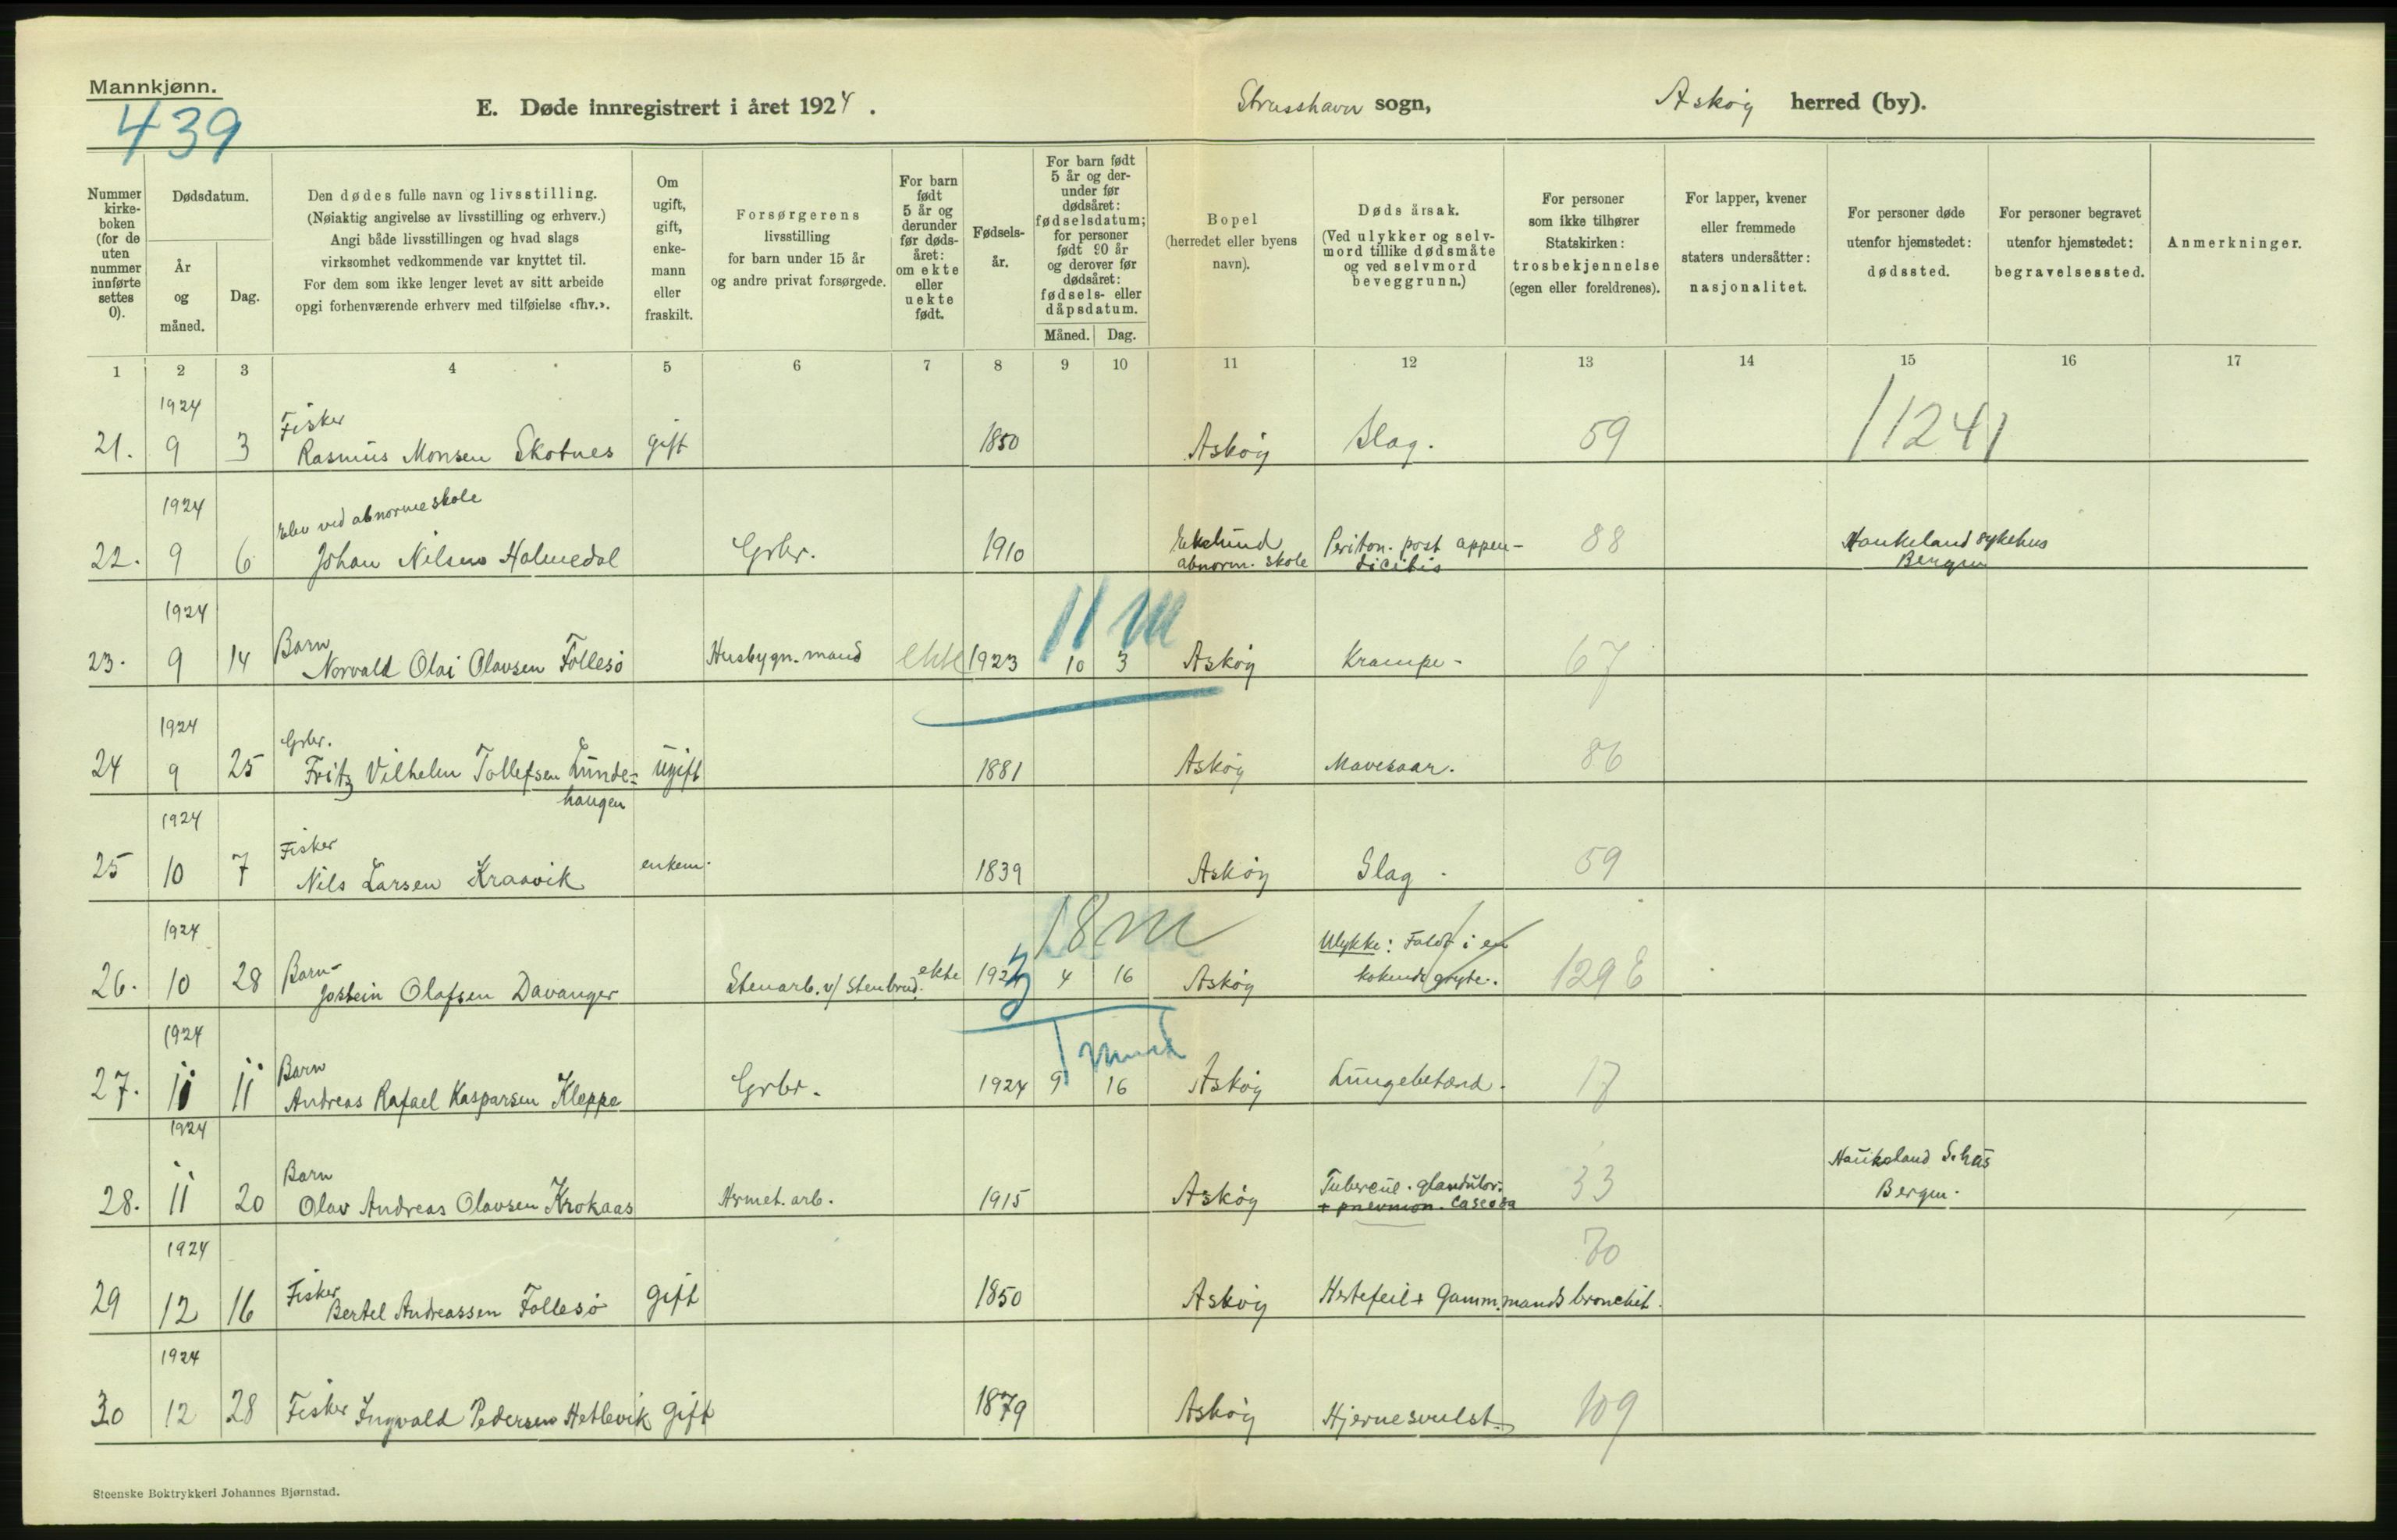 Mannkjønn.
439
E. Døde innregistrert i året 1924.
Strusshavn sogn,
Askøy herred (by).
Nummer kirke-boken (for de uten nummer innførte settes 0).
Dødsdatum.
År og måned.
Dag.
Den dødes fulle navn og livsstilling.
(Nøiaktig angivelse av livsstilling og erhverv.)
Angi både livsstillingen og hvad slags
virksomhet vedkommende var knyttet til.
For dem som ikke lenger levet av sitt arbeide
opgi forhenværende erhverv med tilføielse «fhv.».
Om ugift, gift, enke-mann eller fraskilt.
Forsørgerens
livsstilling
for barn under 15 år
og andre privat forsørgede.
For barn født 5 år og derunder før døds-året: om ekte eller uekte født.
Fødsels-år.
For barn født 5 år og der-under før dødsåret: fødselsdatum; for personer født 90 år og derover før dødsåret: fødsels- eller dåpsdatum.
Måned. Dag.
Bopel
(herredet eller byens
navn).
Dødsårsak.
(Ved ulykker og selv-
mord tillike dødsmåte
og ved selvmord
beveggrunn.)
For personer
som ikke tilhører
Statskirken:
trosbekjennelse
(egen eller foreldrenes).
For lapper, kvener
eller fremmede
staters undersåtter:
nasjonalitet.
For personer døde
utenfor hjemstedet:
dødssted.
For personer begravet
utenfor hjemstedet:
begravelsessted.
Anmerkninger.
1 2 3 4 5 6 7 8 9 10 11 12 13 14 15 16 17
1924
Fisker
21. 9 3 Rasmus Monsen Skotnes gift 1850 Askøy Slag. 59 /1241
1924
Elev ved abnormeskole
22. 9 6 Johan Nilsen Holmedal Grbr. 1910 Ekelund abnorm. skole Periton. post appen-dicitis 88 Haukeland sykehus Bergen
11 M
1924
Barn
23. 9 14 Norvald Olai Olavsen Follesø Husbygn.mand ekte 1923 10 3 Askøy Krampe - 67
1924
Grbr.
24 9 25 Fritz Vilhelm Tollefsen Lunde-haugen Ugift 1881 Askøy Mavesaar. 86
1924
Fisker
25 10 7 Nils Larsen Kraavik enkem. 1839 Askøy Slag. 59
18 M
1924
Barn-
26. 10 28 Jostein Olafsen Davanger Stenarb. v/ Stenbrud. ekte 1923 4 16 Askøy Ulykke: Faldt i en kokende gryte. 129 E
1 mnd
1924
Barn
27. 11 11 Andreas Rafael Kasparsen Kleppe Grbr. 1924 9 16 Askøy Lungebetænd. 17
1924
Barn
28. 11 20 Olav Andreas Olavsen Krokaas Hrmet.arb. 1915 Askøy Tubercul. glandular. + pnevmon. caseosa 33 Haukeland S.hus Bergen.
1924
70
29 12 16 Fisker Bertel Andreassen Follesø gift 1850 Askøy Hertefeil + Gamm.mands bronchit.
1924
30 12 28 Fisker Ingvald Pedersen Hetlevik gift 1879 Askøy Hjernesvulst 109
Steenske Boktrykkeri Johannes Bjørnstad.